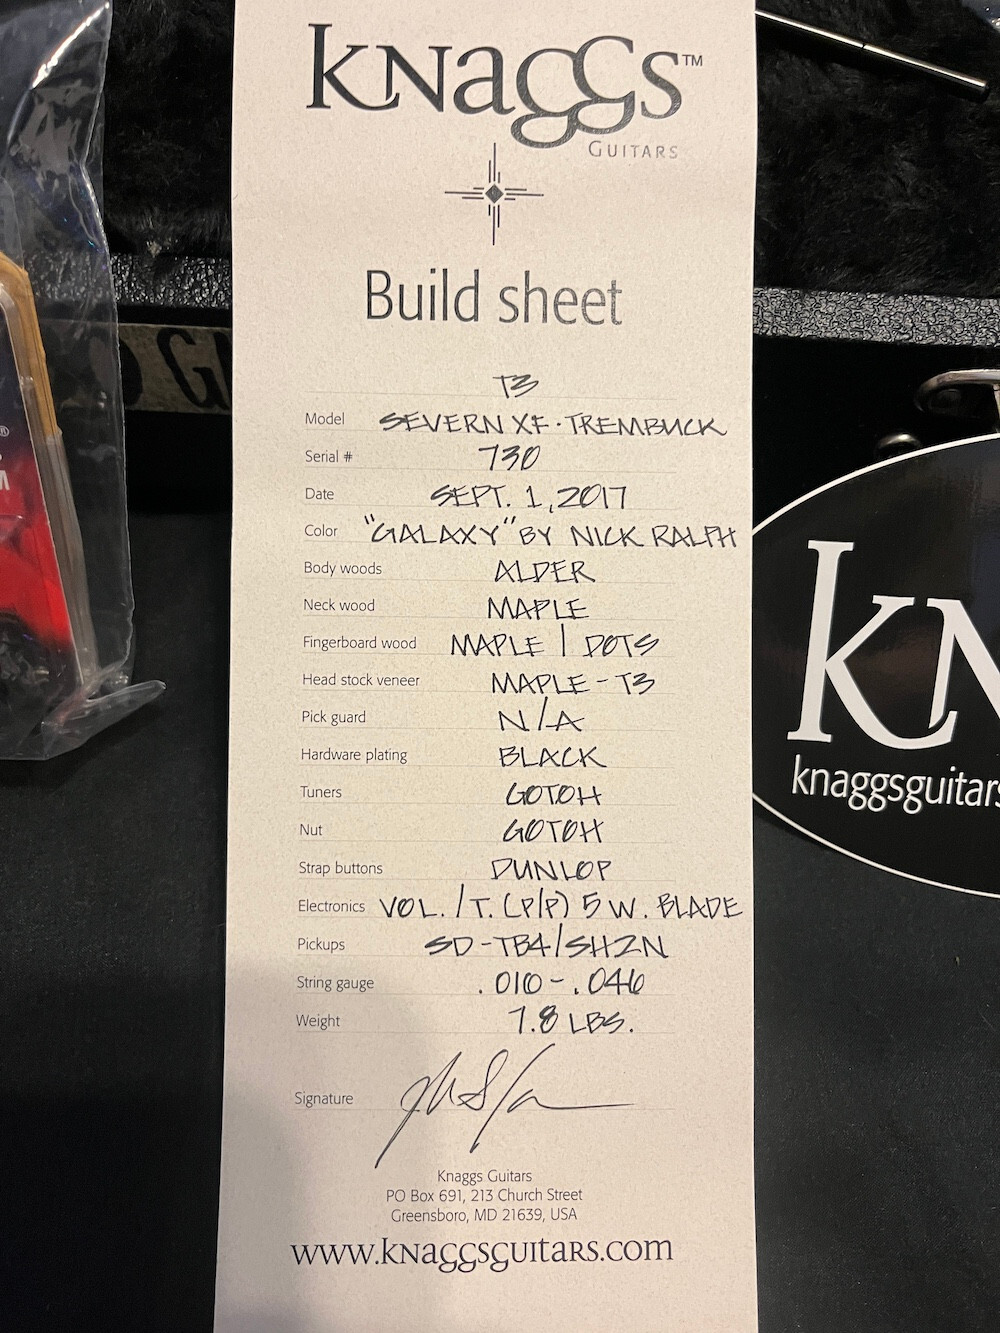 KNAGGS™
GUITARS
Build sheet
T3
Model SEVERN XF · TREMBUCK
Serial # 730
Date SEPT. 1, 2017
Color "GALAXY" BY NICK RALPH
Body woods ALDER
Neck wood MAPLE
Fingerboard wood MAPLE | DOTS
Head stock veneer MAPLE - T3
Pick guard N/A
Hardware plating BLACK
Tuners GOTOH
Nut GOTOH
Strap buttons DUNLOP
Electronics VOL. / T. (P/P) 5 W. BLADE
Pickups SD-TB4/SH2N
String gauge .010 - .046
Weight 7.8 LBS.
Signature
Knaggs Guitars
PO Box 691, 213 Church Street
Greensboro, MD 21639, USA
www.knaggsguitars.com
KN
knaggsguitars
G